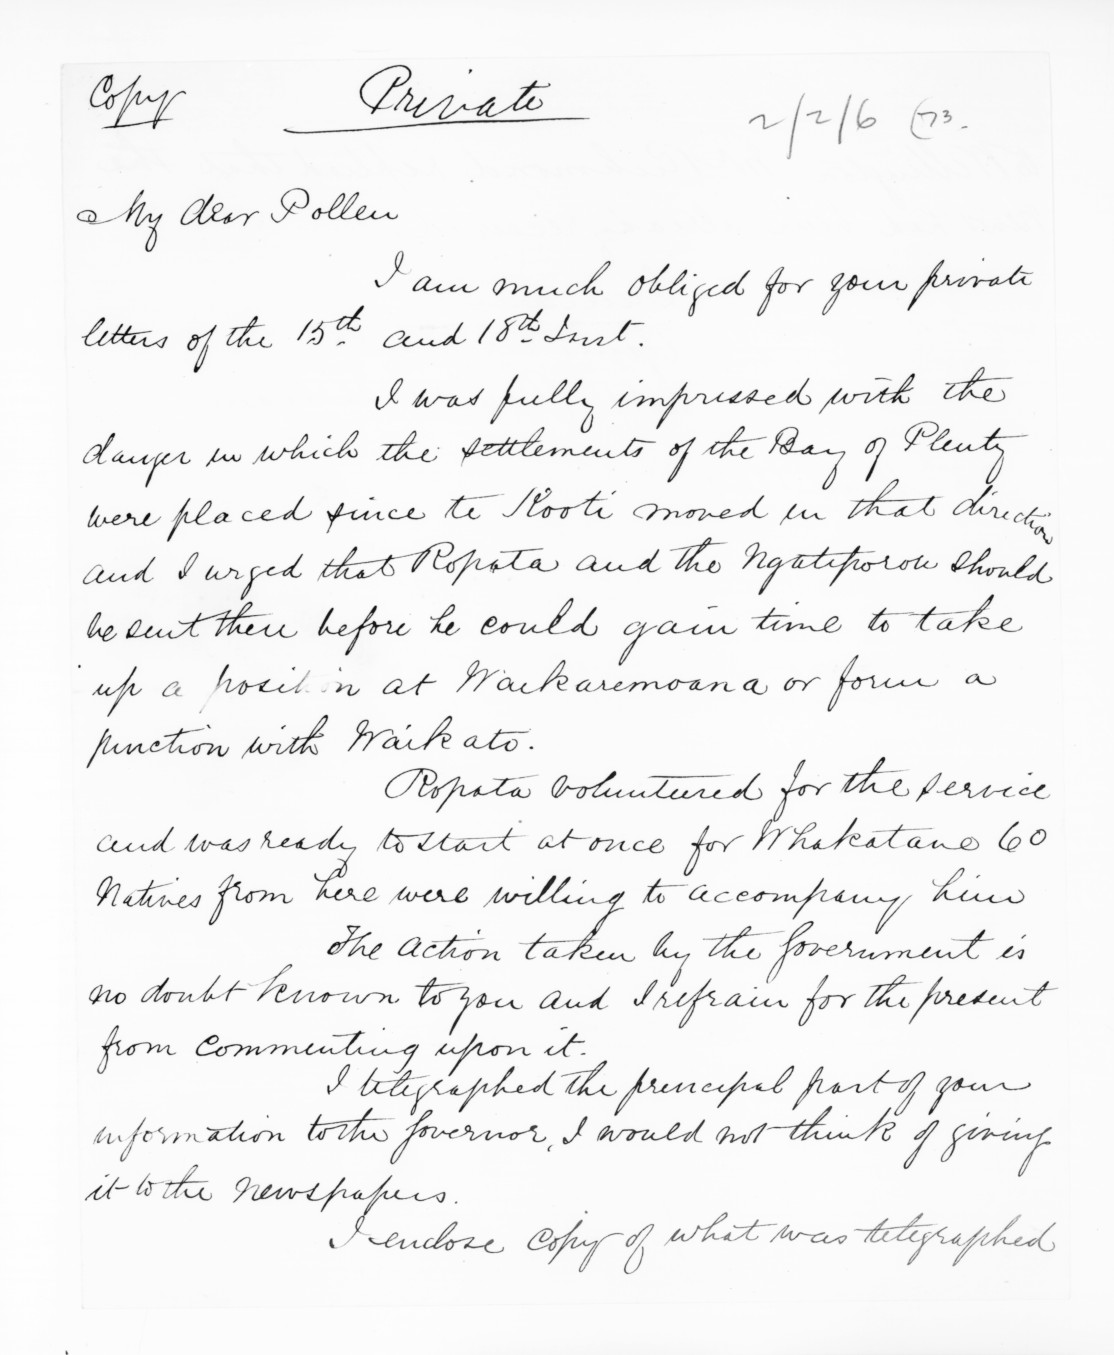 Copy Private 2/2/6 (73.
My dear Pollen
I am much obliged for your private
letters of the 15th. and 18th. Inst.
I was fully impressed with the
danger in which the settlements of the Bay of Plenty
were placed since te Kooti moved in that direction
and I urged that Ropata and the Ngatiporou should
be sent there before he could gain time to take
up a position at Waikaremoana or form a
junction with Waikato.
Ropata volunteered for the service
and was ready to start at once for Whakatane 60
Natives from here were willing to accompany him
The action taken by the Government is
no doubt known to you and I refrain for the present
from commenting upon it.
I telegraphed the principal part of your
information to the Governor, I would not think of giving
it to the Newspapers.
I enclose copy of what was telegraphed